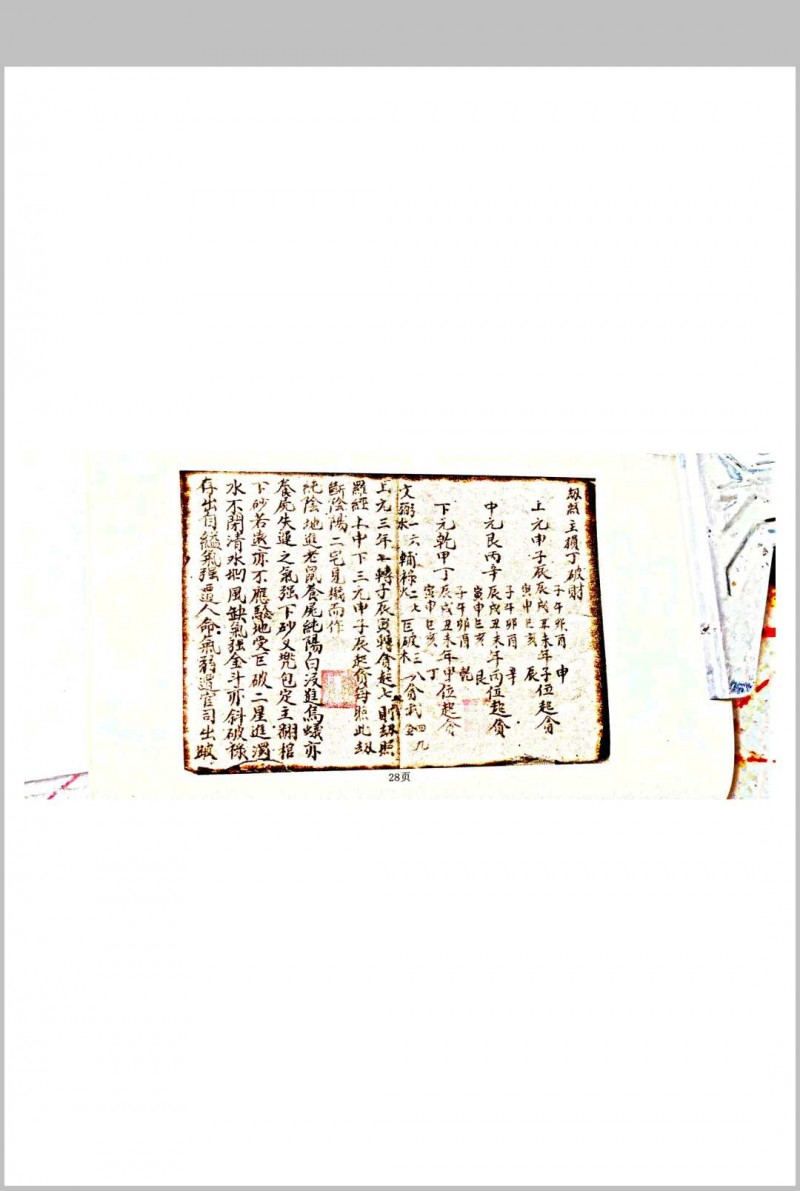 劫煞主損丁破財
子午卯酉 申
上元申子辰辰戌丑未年子位起貪
寅申巳亥 辰
子午卯酉 辛
中元艮丙辛辰戌丑未年丙位起貪
寅申巳亥 艮
子午卯酉 乾
下元乾甲丁辰戌丑未年甲位起貪
寅申巳亥 丁
文弼水一六輔祿火二七巨破木三八貪武金四九
上元三年一轉子辰寅轉貪起七則劫照
羅經上中下三元申子辰起貪符照此劫
斷陰陽二宅見機而作
純陰地進老鼠養屍純陽白沒進馬蟻亦
養屍失運之氣强下砂又兜包定主翻棺
下砂若遠亦不應驗地受巨破二星進濁
水不開清水凹風缺氣強金斗亦斜破祿
存出自縊氣强遭人命氣弱遭官司出跛
28页